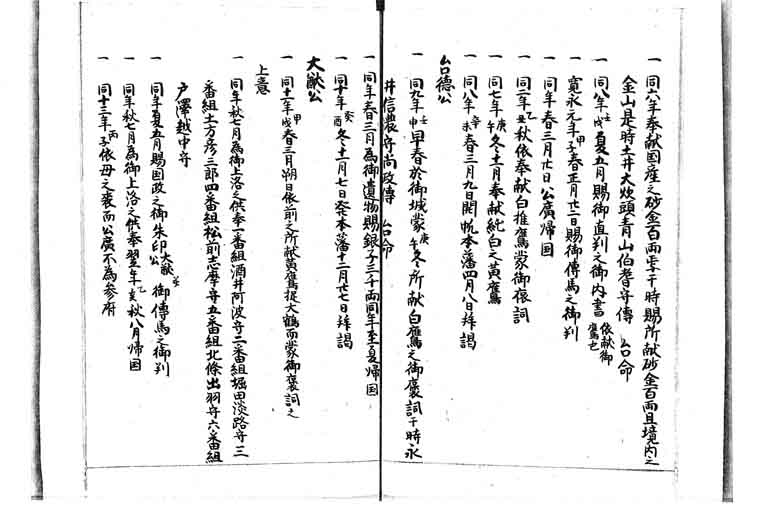 一 同六年奉献国産之砂金百両于時賜所献砂金百両且境内之
金山是時土井大炊頭青山伯耆守傳 台命
一 同八年壬戌夏五月賜御直判之御内書依献御鷹也
一 寛永元年甲子春正月廿二日賜御傳馬之御判
一 同年春三月廿日公廣帰国
一 同二年乙丑秋依奉献白推鷹蒙御褒詞
一 同七年庚午冬十一月奉献純白之黄鷹
一 同八年辛未春三月九日開帆本藩四月八日拜謁
台徳公
一 同九年壬申早春於御城蒙庚午冬所献白鷹之御褒詞于時永
井信濃守尚政傳 台命
一 同年春三月為御遺物賜銀子三千両同年至夏帰国
一 同十年癸酉冬十一月七日発本藩十二月廿七日拜謁
大猷公
一 同十一年甲戌春三月朔日依前之所献黄鷹捉大鶴而蒙御褒詞之
上意
一 同年秋七月為御上洛之供奉一番組酒井阿波守二番組堀田淡路守三
番組土方彦三郎四番組松前志摩守五番組北條出羽守六番組
戸澤越中守
一 同年夏五月賜国政之御朱印大猷公御傳馬之御判
一 同年秋七月為御上洛之供奉翌年乙亥秋八月帰国
一 同十三年丙子依母之喪而公廣不為参府